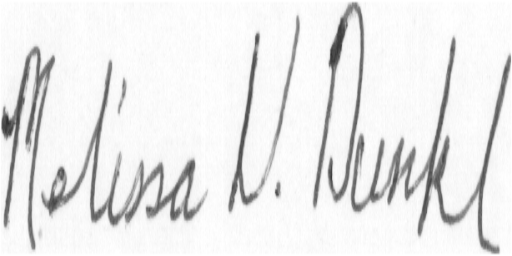 Melissa V. Dunkl